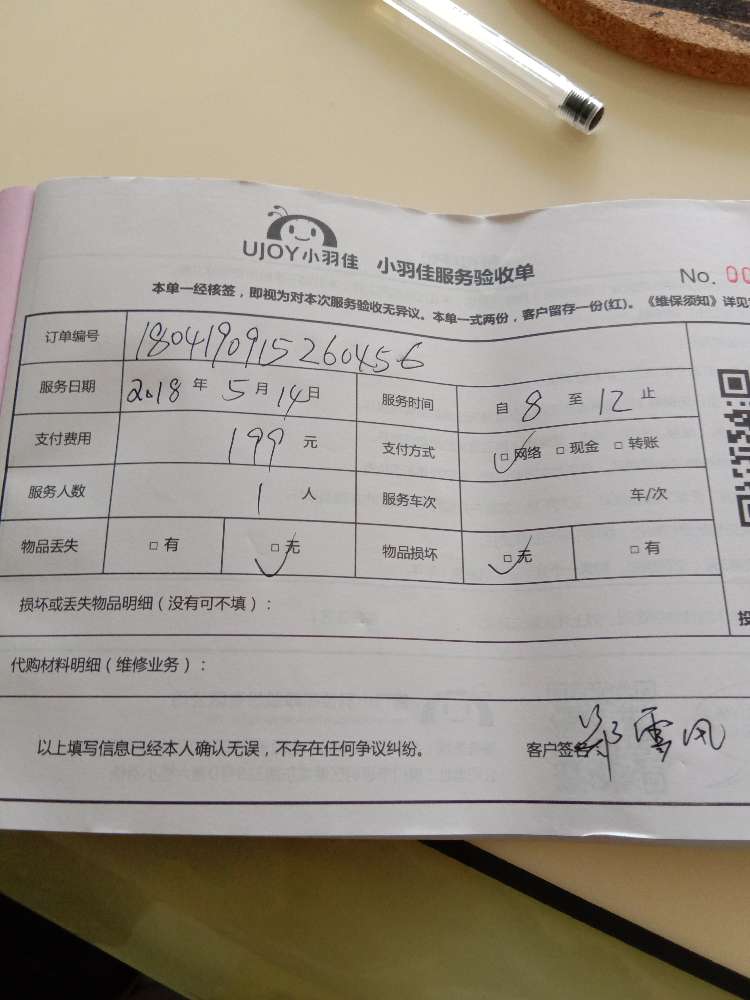 UJOY小羽佳 小羽佳服务验收单
No. 00
本单一经核签，即视为对本次服务验收无异议。本单一式两份，客户留存一份(红)。《维保须知》详见
订单编号 1804190915260456
服务日期 2018 年 5 月 14 日 服务时间 自 8 至 12 止
支付费用 199 元 支付方式 □ 网络 □ 现金 □ 转账
服务人数 1 人 服务车次 车/次
物品丢失 □ 有 □ 无 物品损坏 □ 无 □ 有
损坏或丢失物品明细（没有可不填）：
代购材料明细（维修业务）：
以上填写信息已经本人确认无误，不存在任何争议纠纷。 客户签名 郑雲风